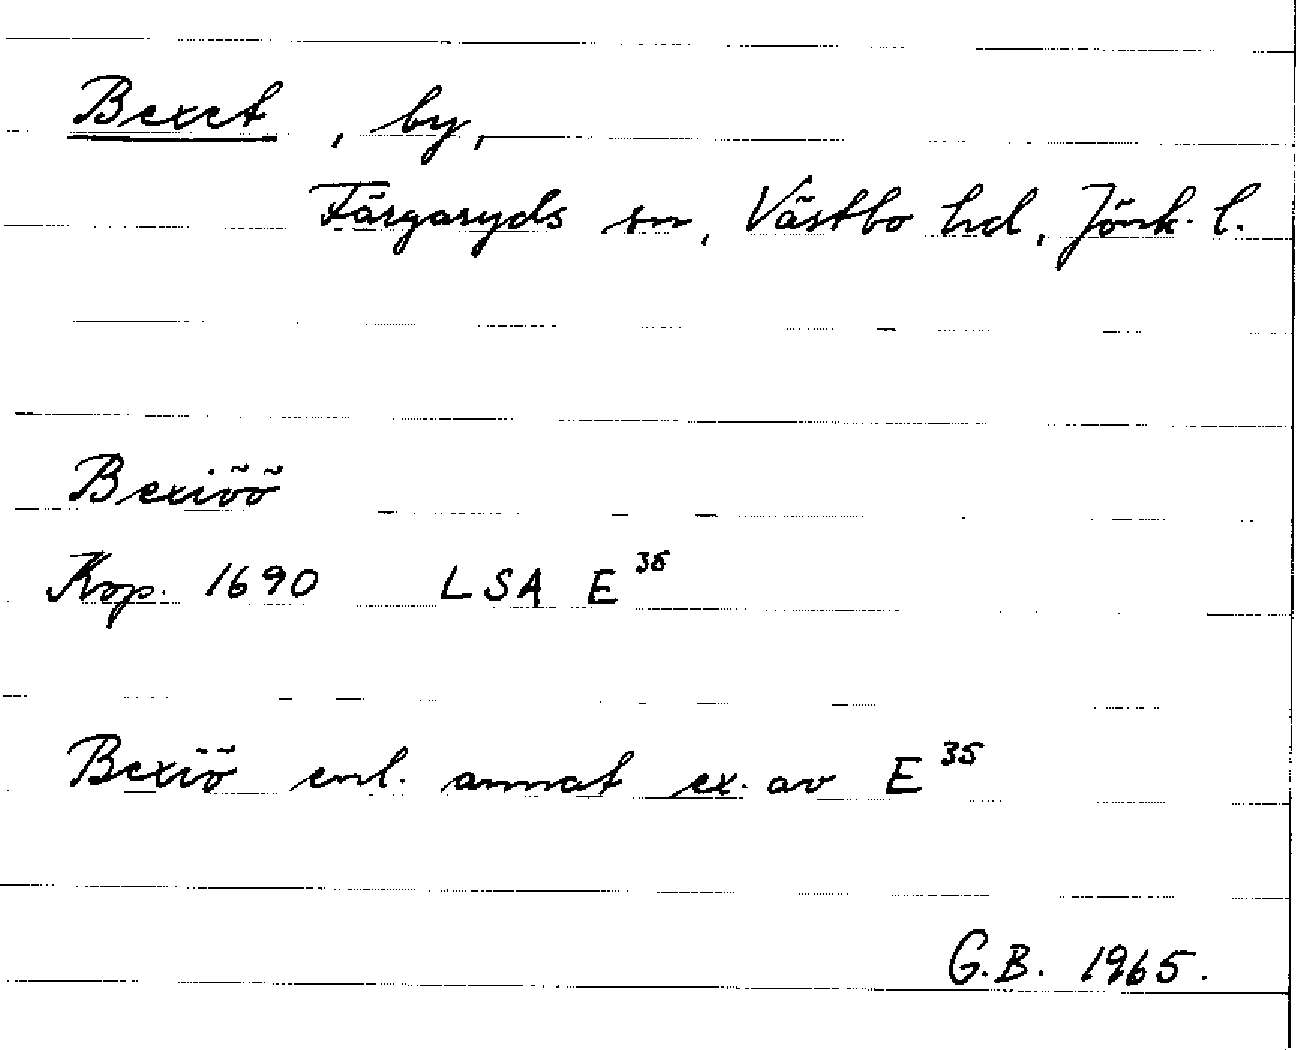 Bexet, by,
Färgaryds sn, Västbo hd, Jönk. l.
Bexiöö
Kop. 1690 LSA E³⁵
Bexiö enl. annat ex. av E³⁵
G.B. 1965.